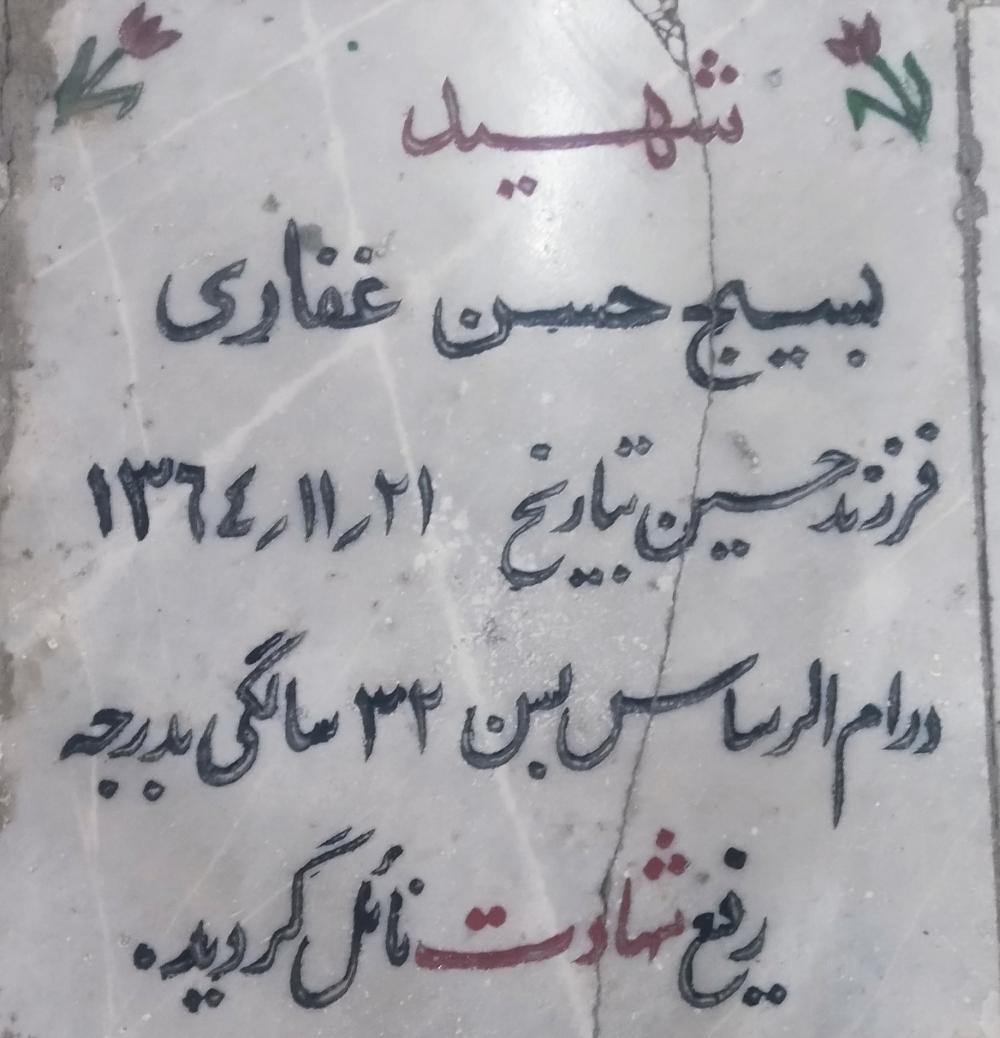 شهید
بسیج حسن غفاری
فرزند حسین بتاریخ ۲۱ر۱۱ر۱۳٦٤
درام الرساس بسن ۳۲ سالگی بدرجه
رفیع شهادت نائل گردید.